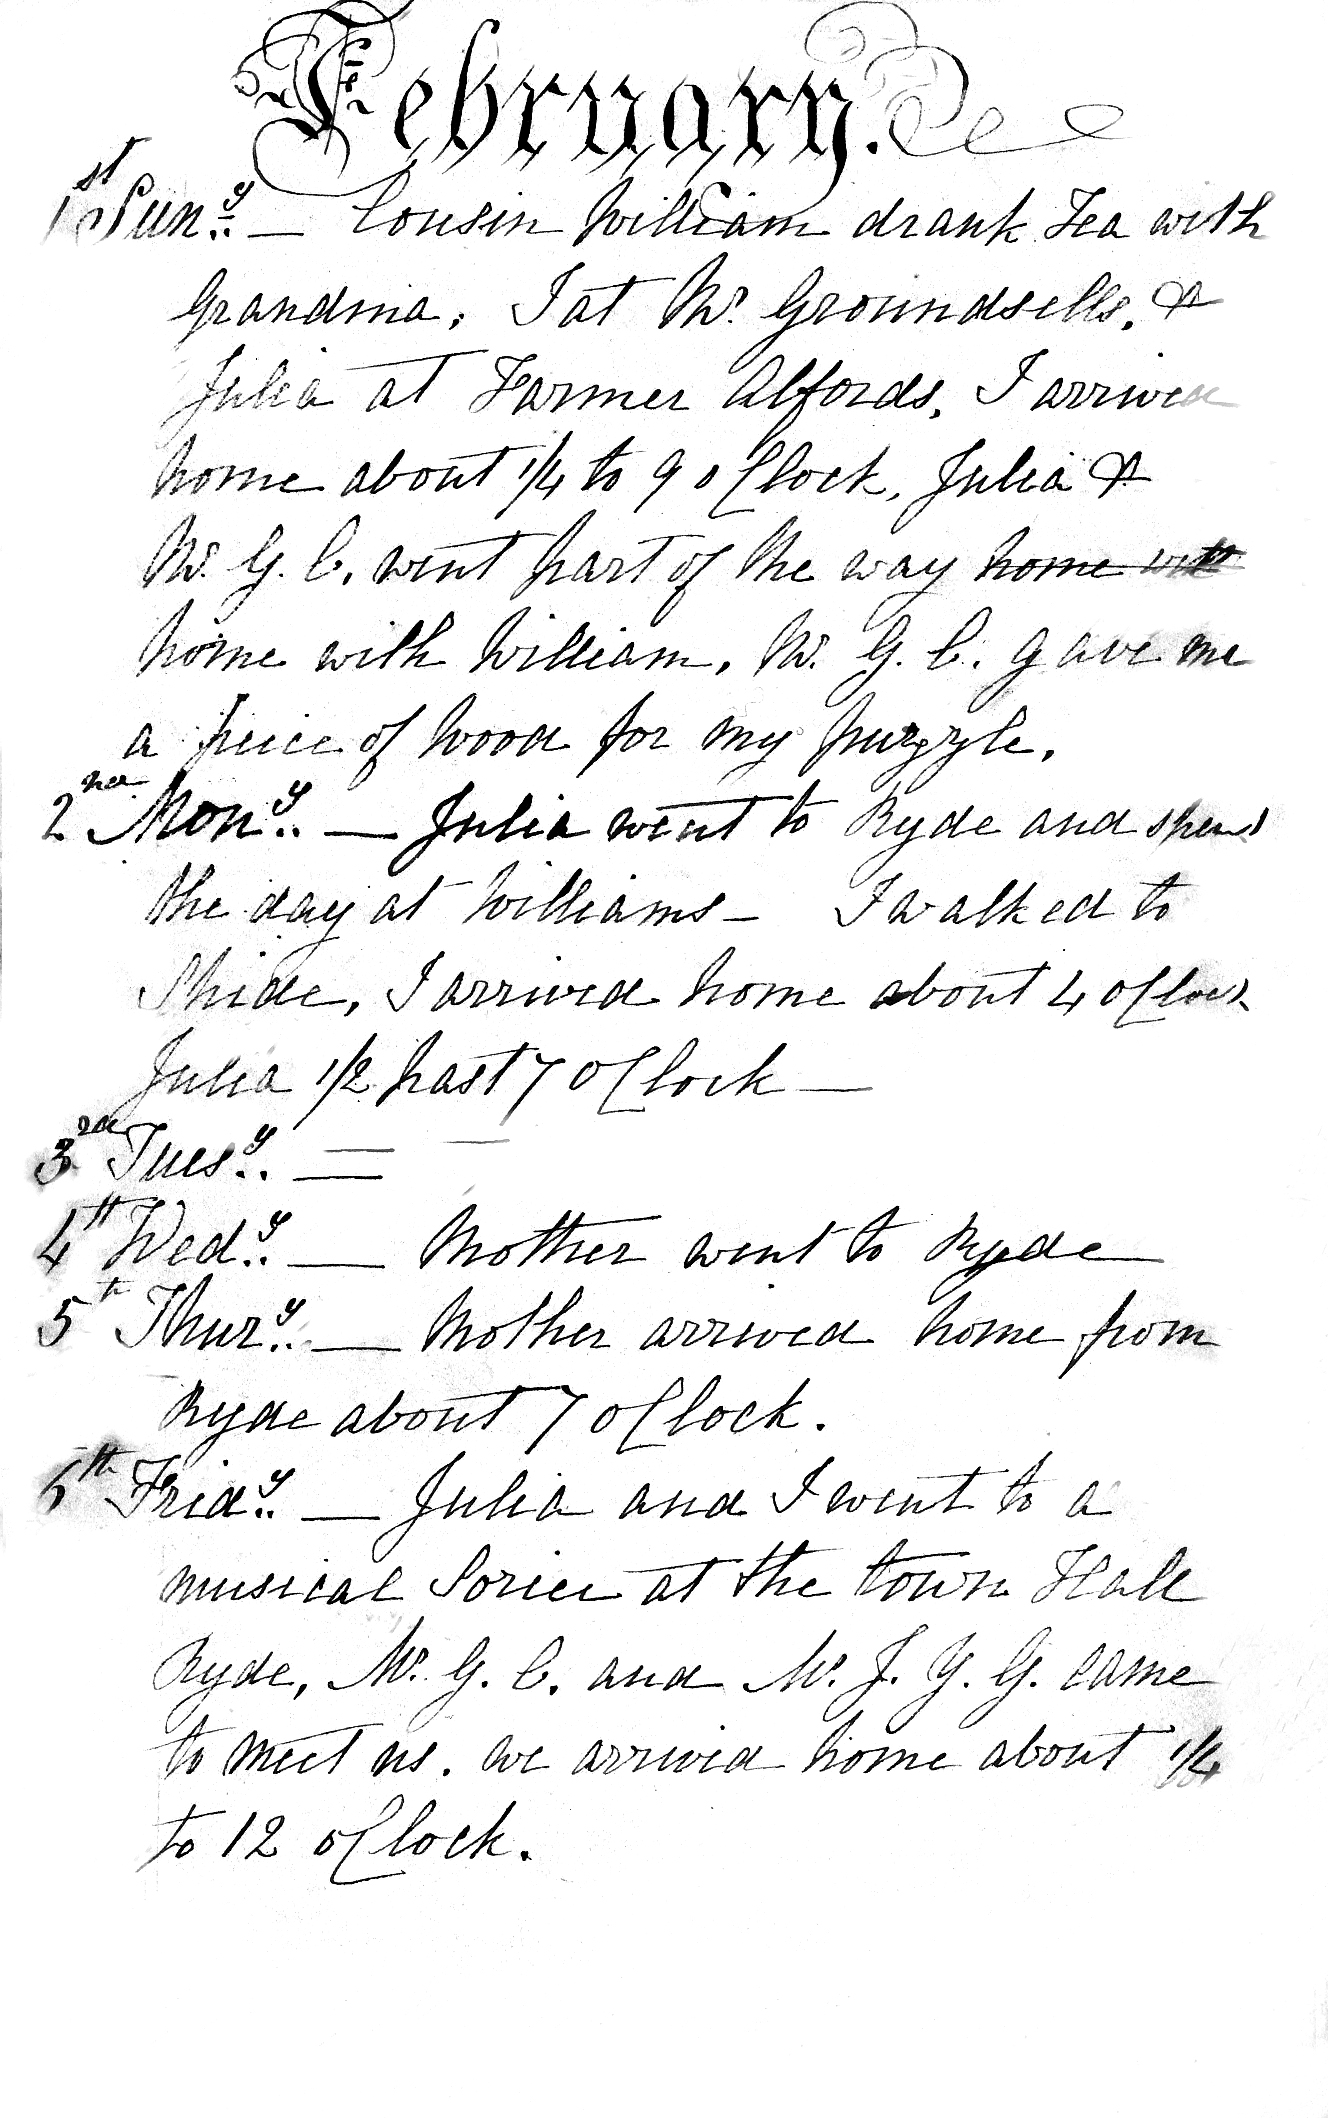 February.
1st Sun.y — Cousin William drank Tea with
Grandma, I at Mr. Groundsells, &
Julia at Farmer Alfords, I arrived
home about 1/4 to 9 oClock, Julia &
Mr. G. C. went part of the way home with
home with William, Mr. G. C. gave me
a peice of wood for my puzzle.
2nd Mon.y — Julia went to Ryde and spend
the day at Williams — I walked to
Shide, I arrived home about 4 oClock
Julia 1/2 past 7 oClock —
3rd Tues.y —
4th Wed.y — Mother went to Ryde
5th Thur.y — Mother arrived home from
Ryde about 7 oClock.
6th Frid.y — Julia and I went to a
musical Soriee at the town Hall
Ryde, Mr. G. C. and Mr. J. Y. G. came
to meet us. we arrived home about 1/4
to 12 oClock.